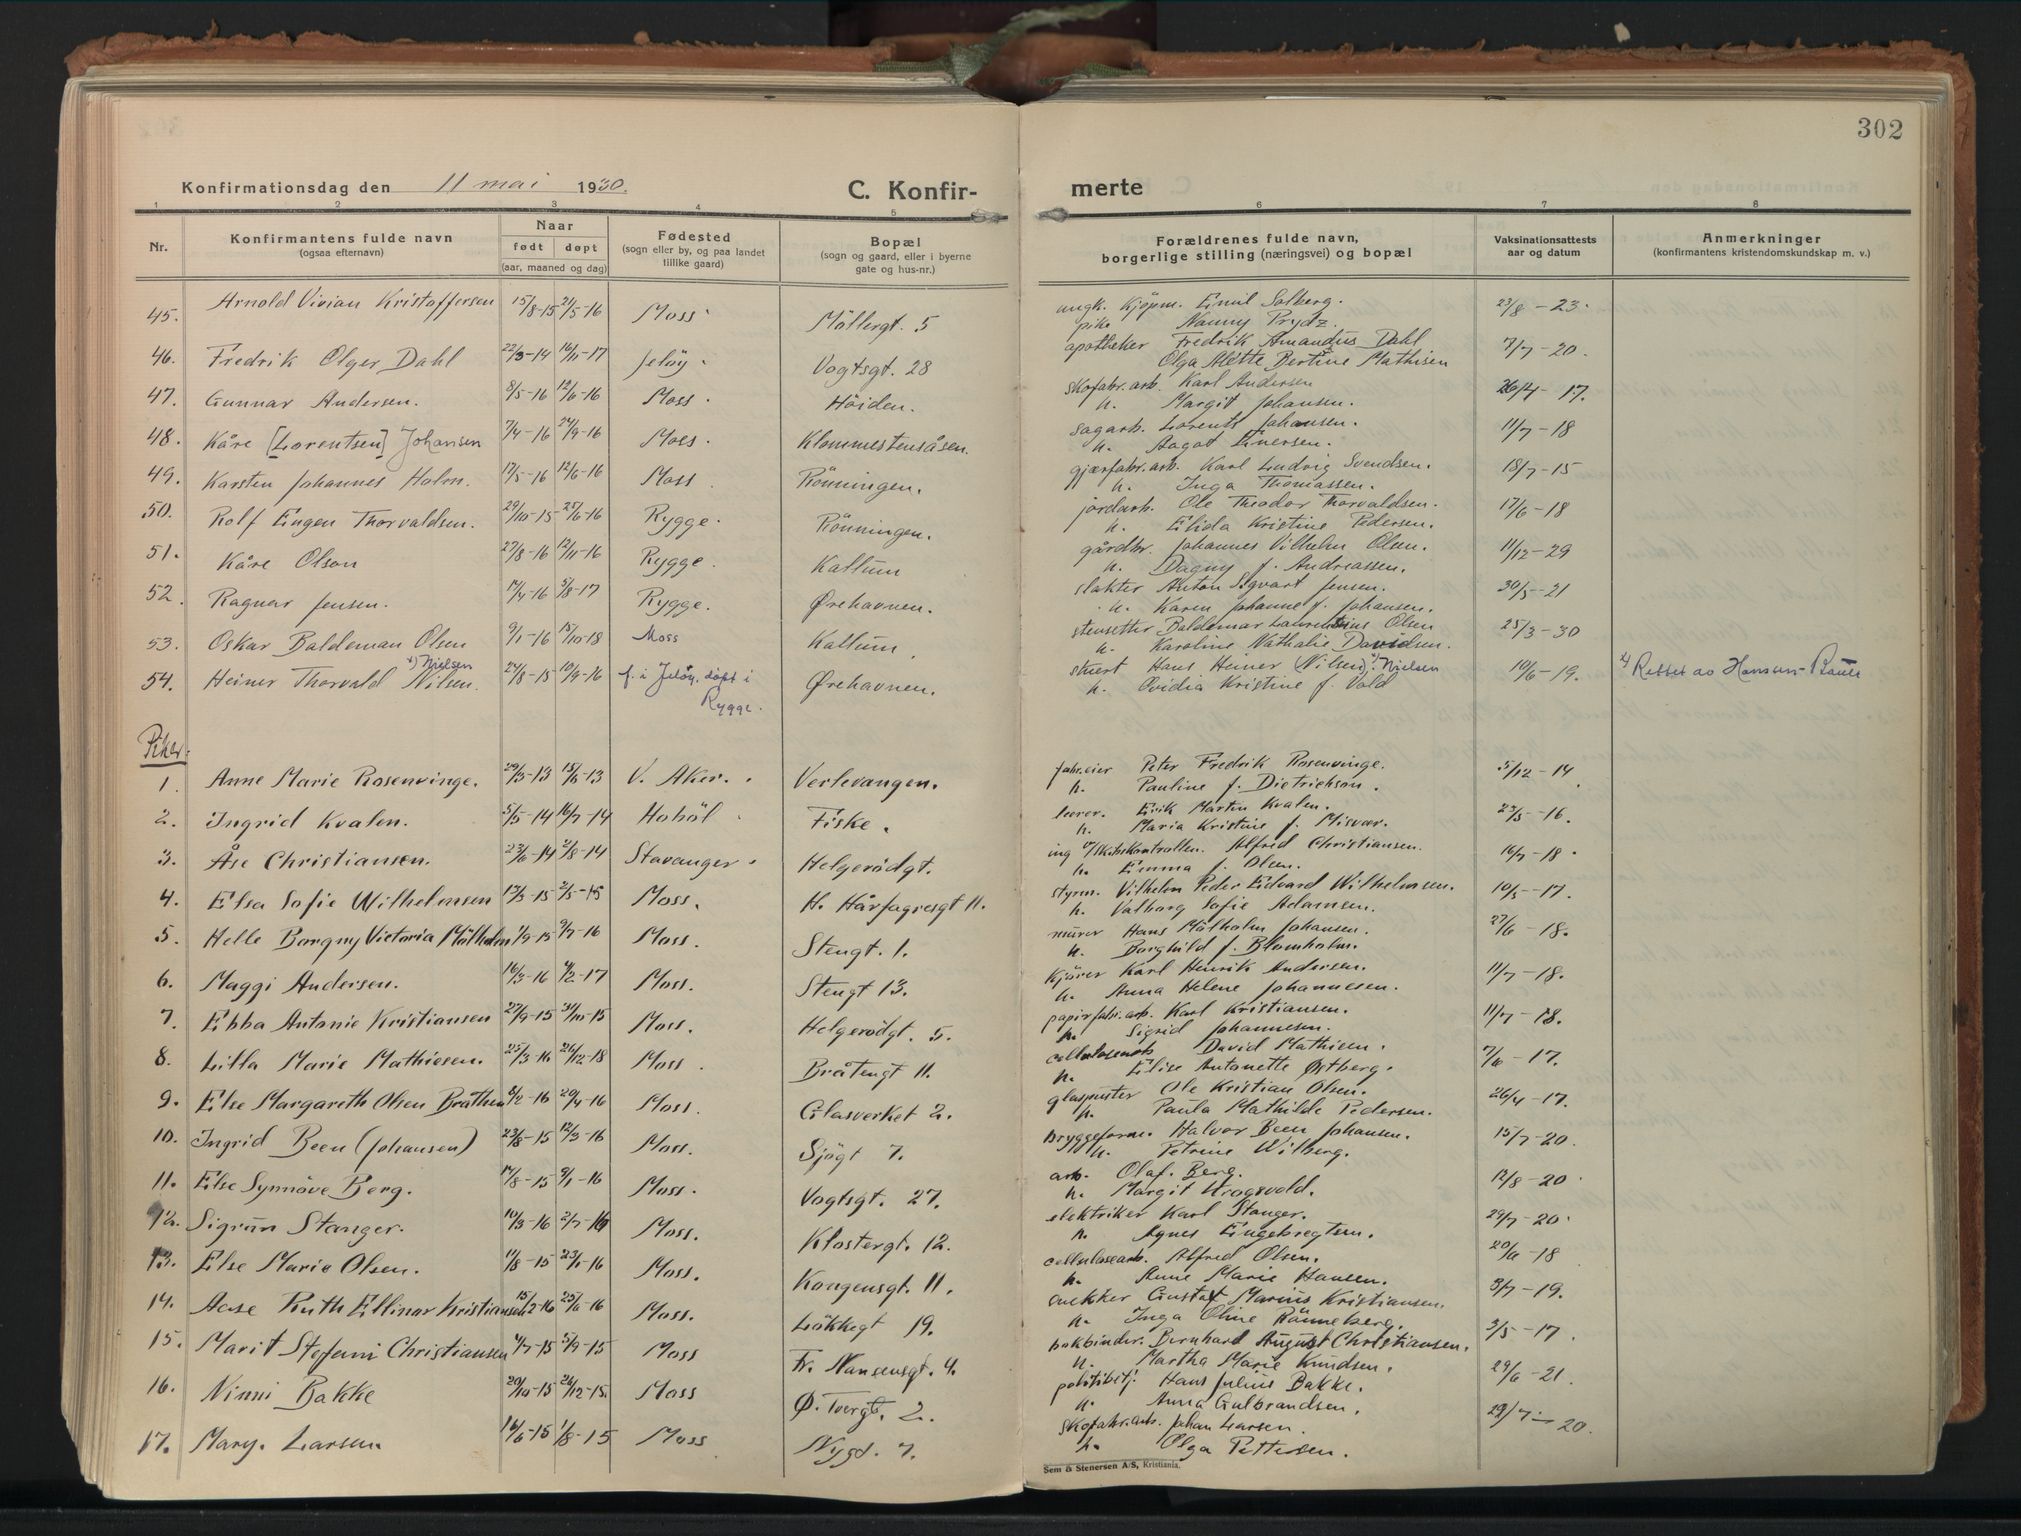 302
Konfirmationsdag den 11 mai 1930. C. Konfir- merte
1 2 3 4 5 6 7 8
Nr. Konfirmantens fulde navn (ogsaa efternavn) Naar født døpt (aar, maaned og dag) Fødested (sogn eller by, og paa landet tillike gaard) Bopæl (sogn og gaard, eller i byerne gate og hus-nr.) Forældrenes fulde navn, borgerlige stilling (næringsvei) og bopæl Vaksinationsattests aar og datum Anmerkninger (konfirmantens kristendomskundskap m. v.)
45. Arnold Vivian Kristoffersen 15/8-15 21/5-16 Moss Möllergt. 5 ungk. Kjöpm. Emil Solberg. 23/8-23.
pike Nanny Prydz.
46. Fredrik Olger Dahl 22/3-14 16/11-17 Jelöy. Vogtsgt. 28 apotheker Fredrik Amandus Dahl 7/7-20.
Olga Mette Bertine Mathisen
47. Gunnar Andersen. 8/5-16 12/6-16 Moss. Höiden. skofabr. arb. Karl Andersen 26/4-17.
h. Margit Johansen.
48. Kåre [Lorentsen] Johansen 7/4-16 24/9-16 Moss. Klommestensåsen. sagarb. Lorentz Johansen. 11/7-18
h. Aagot Enersen.
49. Karsten Johannes Holm. 17/5-16 12/6-16 Moss. Rönningen. gjærfabr. arb. Karl Ludvig Svendsen. 18/7-15
h. Inga Thomassen.
50. Rolf Eugen Thorvaldsen. 29/10-15 25/6-16 Rygge. Rönningen. jordarb. Ole Theodor Thorvaldsen. 17/6-18
h. Elida Kristine Pedersen.
51. Kåre Olsen 27/8-16 12/11-16 Rygge. Kallum gårdbr. Johannes Vilhelm Olsen. 11/12-29
h. Dagny f. Andreassen.
52. Ragnar Jensen. 17/4-16 5/8-17 Rygge. Ørehavnen. slakter Anton Sigvart Jensen. 30/5-21
h. Karen Johanne f. Johansen.
53. Oskar Baldeman Olsen 9/1-16 15/10-18 Moss Kallum. stensetter Baldemar Laurentius Olsen 25/3-30
h. Karoline Nathalie Davidsen.
54. Heiner Thorvald Nilsen. x) Nielsen 27/8-15 10/9-16 f. i Jeløy, döpt i Rygge. Ørehavnen. stuert Hans Heiner (Nilsen) x) Nielsen 10/6-19. x) Rettet av Hansen-Bauer
h. Ovidia Kristine f. Vold
Piker:
1. Anne Marie Rosenvinge. 29/3-13 15/6-13 V. Aker. Verlevangen. fabr. eier Peter Fredrik Rosenvinge. 5/12-14
h. Pauline f. Dietrichson.
2. Ingrid Kvalen. 5/5-14 16/7-14 Hobøl Fiske. lærer. Erik Martin Kvalen. 23/5-16.
h. Maria Kristine f. Misvær.
3. Åse Christiansen. 23/6-14 2/8-14 Stavanger. Helgerödgt. ing v/Skibskontrollen. Alfred Christiansen. 16/7-18.
h. Emma f. Olsen.
4. Elsa Sofie Wilhelmsen 17/3-15 2/5-15 Moss. H. Hårfagresgt 11. styrm. Vilhelm Peder Edvard Wilhelmsen. 10/5-17.
h. Valborg Sofie Adamsen.
5. Helle Borgny Victoria Mölholm 1/9-15 9/7-16 Moss. Stengt. 1. murer Hans Mölholm Johansen. 27/6-18.
h. Borghild f. Blomholm.
6. Maggi Andersen. 16/3-16 4/2-17 Moss. Stengt 13. Kjörer Karl Henrik Andersen. 11/7-18.
h. Anna Helene Johannesen.
7. Ebba Antonie Kristiansen 22/9-15 31/10-15 Moss. Helgerödgt. 5. papirfabr. arb. Karl Kristiansen. 11/7-18.
h. Sigrid Johannesen.
8. Lilla Marie Mathiesen. 25/3-16 26/12-18 Moss. Bråtengt 11. cellulosearb David Mathisen. 7/6-17.
h. Elise Antonette Østberg.
9. Else Margareth Olsen Bråthen 5/2-16 20/4-16 Moss. Glasverket 2. glaspuster Ole Kristian Olsen. 26/4-17.
h. Paula Mathilde Pedersen.
10. Ingrid Been (Johansen) 23/8-15 12/3-16 Moss. Sjögt 7. Bryggeform. Halvor Been Johansen. 15/7-20.
h. Petrine Wilberg.
11. Else Synnöve Berg. 14/8-15 9/1-16 Moss. Vogtsgt. 27. arb. Olaf Berg. 12/8-20.
h. Margit Krogsvold.
12. Sigrun Stanger. 10/3-16 2/7-16 Moss. Klostergt. 12. elektriker Karl Stanger. 29/7-20.
h. Agnes Engebregtsen.
13. Else Marie Olsen. 11/8-15 23/1-16 Moss. Kongensgt. 11. cellulosearb. Alfred Olsen. 20/6-18
h. Anne Marie Hansen.
14. Aase Ruth Ellinor Kristiansen 15/2-16 25/6-16 Moss. Løkkegt 19. snekker Gustaf Marius Kristiansen. 3/7-19.
h. Inga Oline Rönneberg.
15. Marit Stefani Christiansen 4/7-15 5/9-15 Moss Fr. Nansensgt. 4. bokbinder. Bernhard August Christiansen. 3/5-17.
h. Martha Marie Knudsen.
16. Ninni Bakke 20/10-15 26/12-15. Moss Ø. Tvergt. 2. politibetj. Hans Julius Bakke. 29/6-21.
h. Anna Gulbrandsen.
17. Mary Larsen 16/6-15 1/8-15 Moss Nygd. 7. skofabr. arb. Johan Larsen. 29/7-20.
h. Olga Pettersen.
Sem & Stenersen A/S, Kristiania.